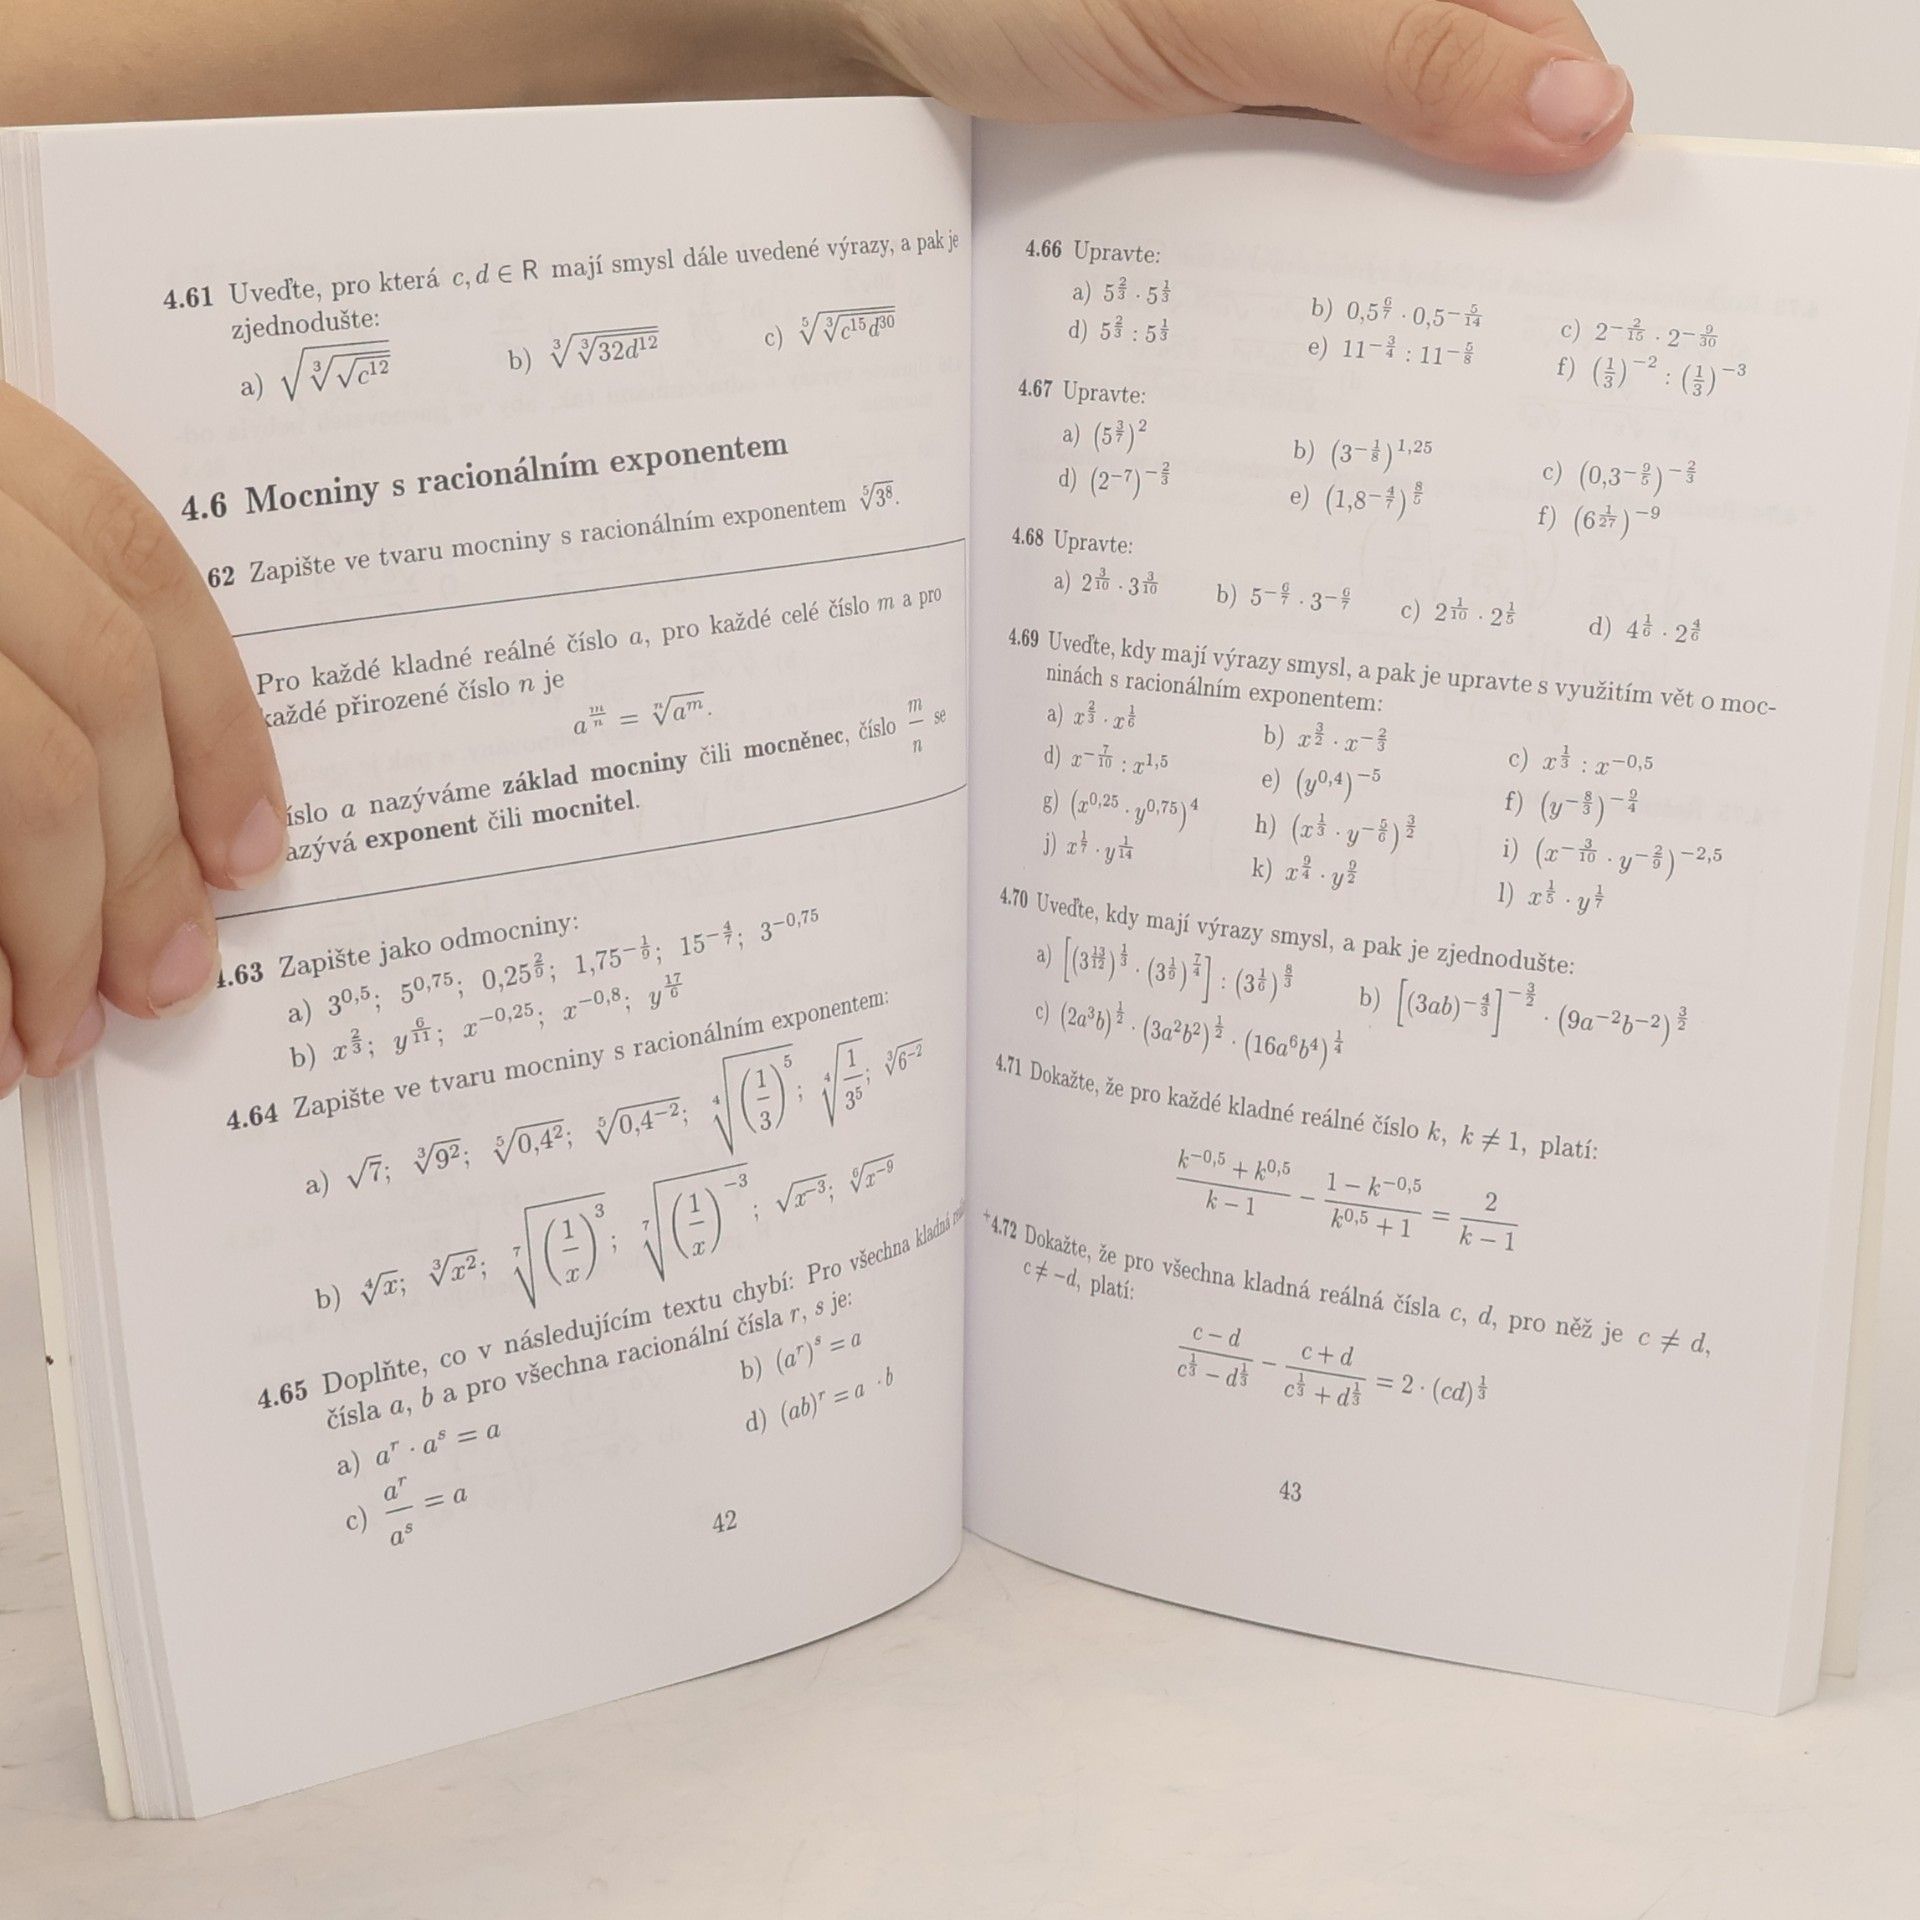 4.61 Uveďte, pro která c, d ∈ R mají smysl dále uvedené výrazy, a pak je
zjednodušte:
a) √(∛(√(c¹²))) b) ∛(∛(32d¹²)) c) ⁵√(∛(c¹⁵d³⁰))
4.6 Mocniny s racionálním exponentem
62 Zapište ve tvaru mocniny s racionálním exponentem ⁵√(3⁸).
Pro každé kladné reálné číslo a, pro každé celé číslo m a pro
každé přirozené číslo n je
a^(m/n) = ⁿ√(a^m).
íslo a nazýváme základ mocniny čili mocněnec, číslo m/n se
azývá exponent čili mocnitel.
4.63 Zapište jako odmocniny:
a) 3^(0,5); 5^(0,75); 0,25^(2/9); 1,75^(−1/9); 15^(−4/7); 3^(−0,75)
b) x^(2/3); y^(6/11); x^(−0,25); x^(−0,8); y^(17/6)
4.64 Zapište ve tvaru mocniny s racionálním exponentem:
a) √7; ∛(9²); ⁵√(0,4²); ⁵√(0,4⁻²); ⁴√((1/3)⁵); ⁴√(1/3⁵); ∛(6⁻²)
b) ⁴√x; ∛(x²); ⁷√((1/x)³); ⁷√((1/x)⁻³); √(x⁻³); ⁶√(x⁻⁹)
4.65 Doplňte, co v následujícím textu chybí: Pro všechna kladná
čísla a, b a pro všechna racionální čísla r, s je:
a) a^r · a^s = a b) (a^r)^s = a
c) a^r/a^s = a d) (ab)^r = a · b
42
4.66 Upravte:
a) 5^(2/3) · 5^(1/3) b) 0,5^(6/7) · 0,5^(−5/14) c) 2^(−2/15) · 2^(−9/30)
d) 5^(2/3) : 5^(1/3) e) 11^(−3/4) : 11^(−5/8) f) (1/3)^(−2) : (1/3)^(−3)
4.67 Upravte:
a) (5^(3/7))² b) (3^(−1/8))^(1,25) c) (0,3^(−9/5))^(−2/3)
d) (2^(−7))^(−2/3) e) (1,8^(−4/7))^(8/5) f) (6^(1/27))^(−9)
4.68 Upravte:
a) 2^(3/10) · 3^(3/10) b) 5^(−6/7) · 3^(−6/7) c) 2^(1/10) · 2^(1/5) d) 4^(1/6) · 2^(4/6)
4.69 Uveďte, kdy mají výrazy smysl, a pak je upravte s využitím vět o moc-
ninách s racionálním exponentem:
a) x^(2/3) · x^(1/6) b) x^(3/2) · x^(−2/3) c) x^(1/3) : x^(−0,5)
d) x^(−7/10) : x^(1,5) e) (y^(0,4))^(−5) f) (y^(−8/3))^(−9/4)
g) (x^(0,25) · y^(0,75))⁴ h) (x^(1/3) · y^(−5/6))^(3/2) i) (x^(−3/10) · y^(−2/9))^(−2,5)
j) x^(1/7) · y^(1/14) k) x^(9/4) · y^(9/2) l) x^(1/5) · y^(1/7)
4.70 Uveďte, kdy mají výrazy smysl, a pak je zjednodušte:
a) [(3^(13/12))^(1/3) · (3^(1/9))^(7/4)] : (3^(1/6))^(8/3) b) [(3ab)^(−4/3)]^(−3/2) · (9a⁻²b⁻²)^(3/2)
c) (2a³b)^(1/2) · (3a²b²)^(1/2) · (16a⁶b⁴)^(1/4)
4.71 Dokažte, že pro každé kladné reálné číslo k, k ≠ 1, platí:
(k^(−0,5) + k^(0,5))/(k − 1) − (1 − k^(−0,5))/(k^(0,5) + 1) = 2/(k − 1)
+4.72 Dokažte, že pro všechna kladná reálná čísla c, d, pro něž je c ≠ d,
c ≠ −d, platí:
(c − d)/(c^(1/3) − d^(1/3)) − (c + d)/(c^(1/3) + d^(1/3)) = 2 · (cd)^(1/3)
43